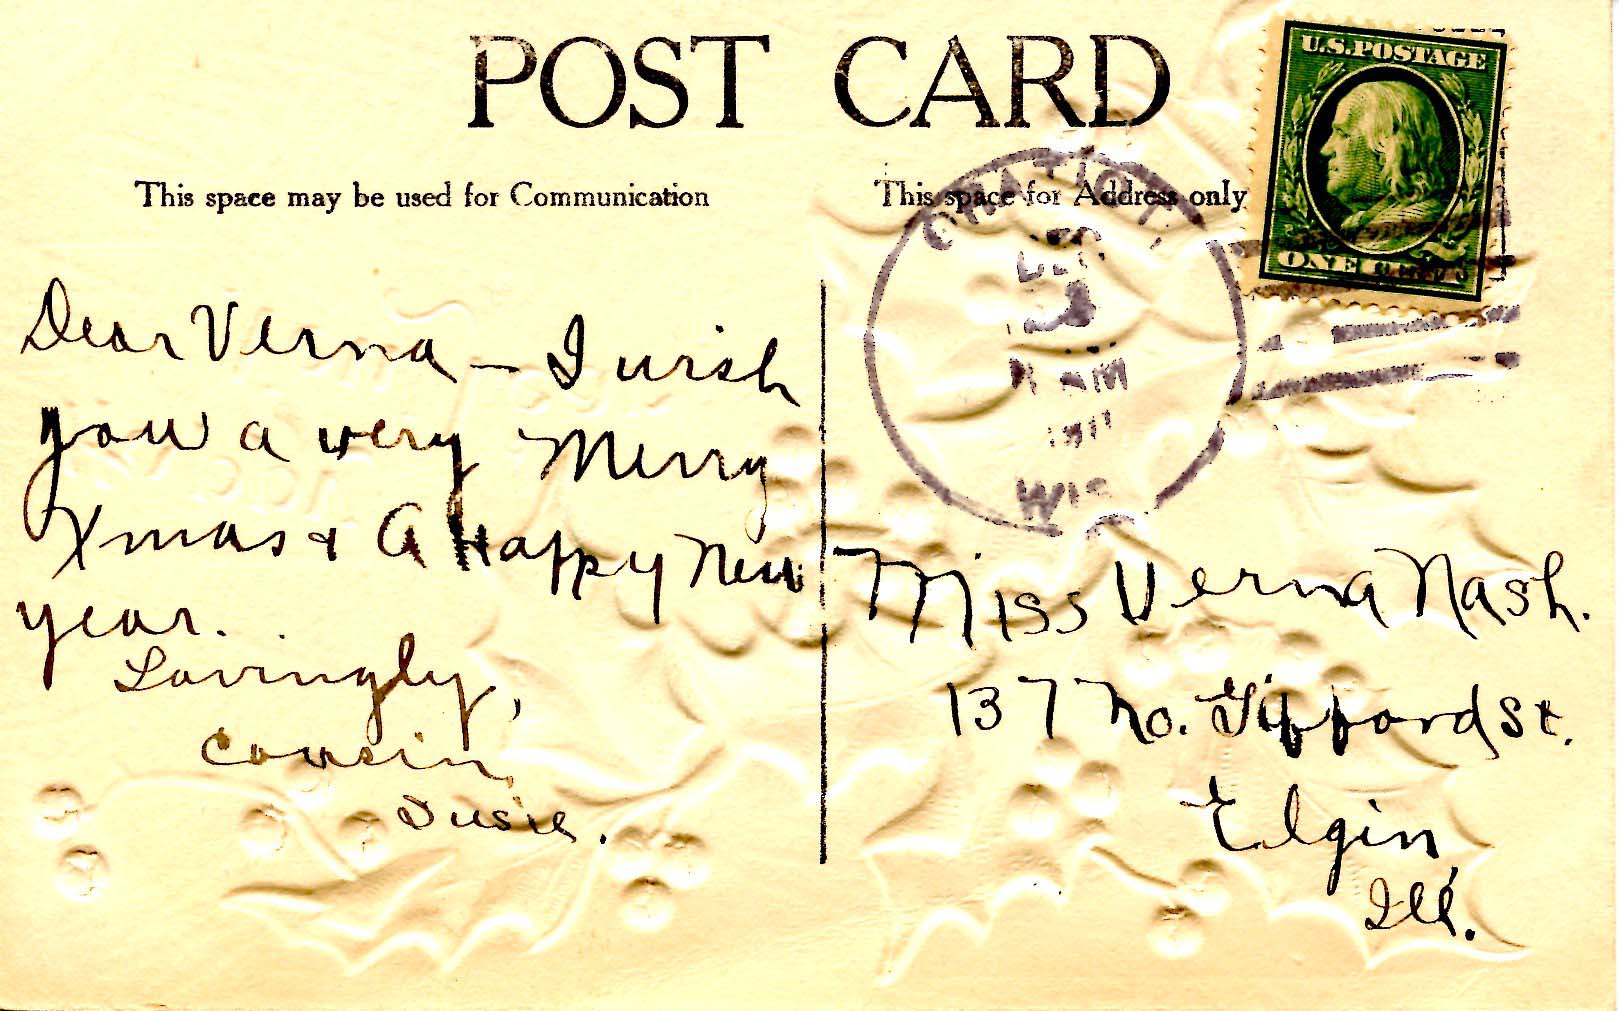 POST CARD
U.S. POSTAGE
ONE
This space may be used for Communication
This space for Address only
DEC
AM
1911
WIS
Dear Verna — I wish
you a very Merry
Xmas & A Happy New
year.
Lovingly,
Cousin
Susie.
Miss Verna Nash.
137 No. Gifford St.
Elgin,
Ill.